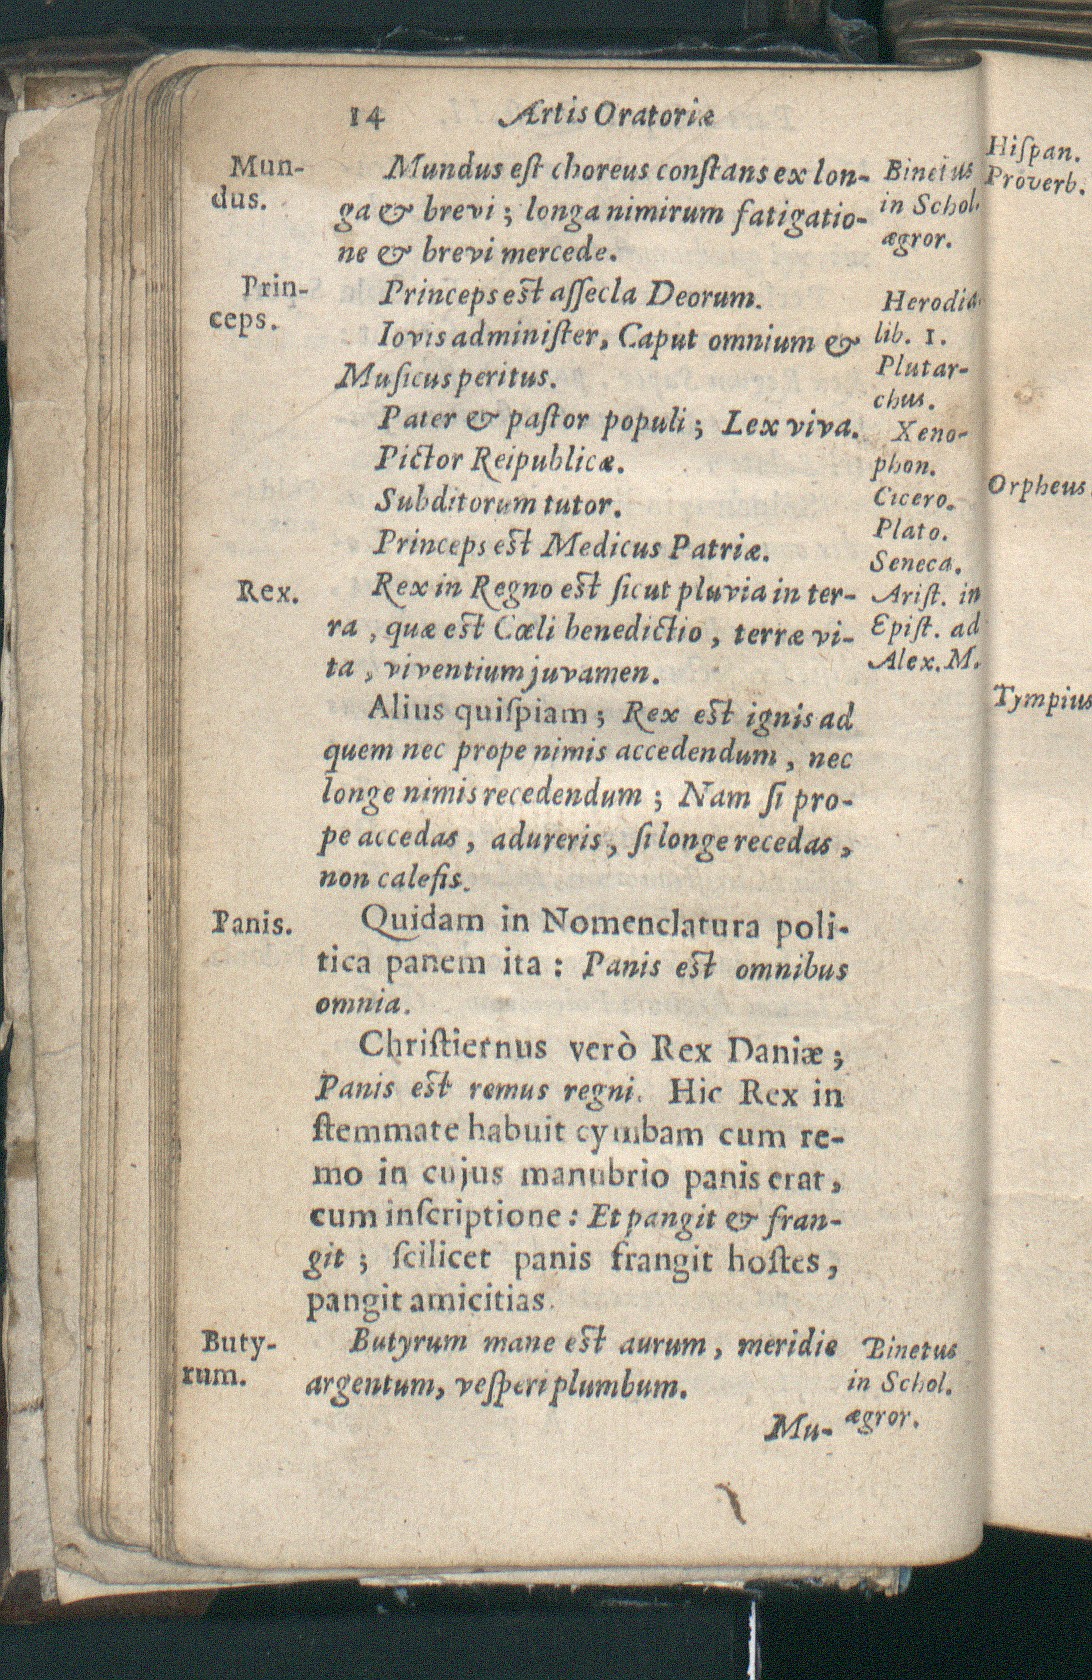 14 Artis Oratoriæ
Mun-
dus.
Mundus eſt choreus conſtans ex lon-
ga & brevi; longa nimirum fatigatio-
ne & brevi mercede.
Binetus
in Schol.
ægror.
Prin-
ceps.
Princeps eſt aſſecla Deorum.
Iovis adminiſter, Caput omnium &
Muſicus peritus.
Pater & paſtor populi; Lex viva.
Pictor Reipublicæ.
Subditorum tutor.
Princeps eſt Medicus Patriæ.
Herodia.
lib. 1.
Plutar-
chus.
Xeno-
phon.
Cicero.
Plato.
Seneca.
Rex.
Rex in Regno eſt ſicut pluvia in ter-
ra, quæ eſt Cœli benedictio, terræ vi-
ta, viventium juvamen.
Ariſt. in
Epiſt. ad
Alex. M.
Alius quiſpiam; Rex eſt ignis ad
quem nec prope nimis accedendum, nec
longe nimis recedendum; Nam ſi pro-
pe accedas, adureris, ſi longe recedas,
non calefis.
Panis.
Quidam in Nomenclatura poli-
tica panem ita: Panis eſt omnibus
omnia.
Chriſtiernus verò Rex Daniæ;
Panis eſt remus regni. Hic Rex in
ſtemmate habuit cymbam cum re-
mo in cujus manubrio panis erat,
cum inſcriptione: Et pangit & fran-
git; ſcilicet panis frangit hoſtes,
pangit amicitias.
Buty-
rum.
Butyrum mane eſt aurum, meridie
argentum, veſperi plumbum.
Binetus
in Schol.
ægror.
Mu-
Hiſpan.
Proverb.
Orpheus
Tympius